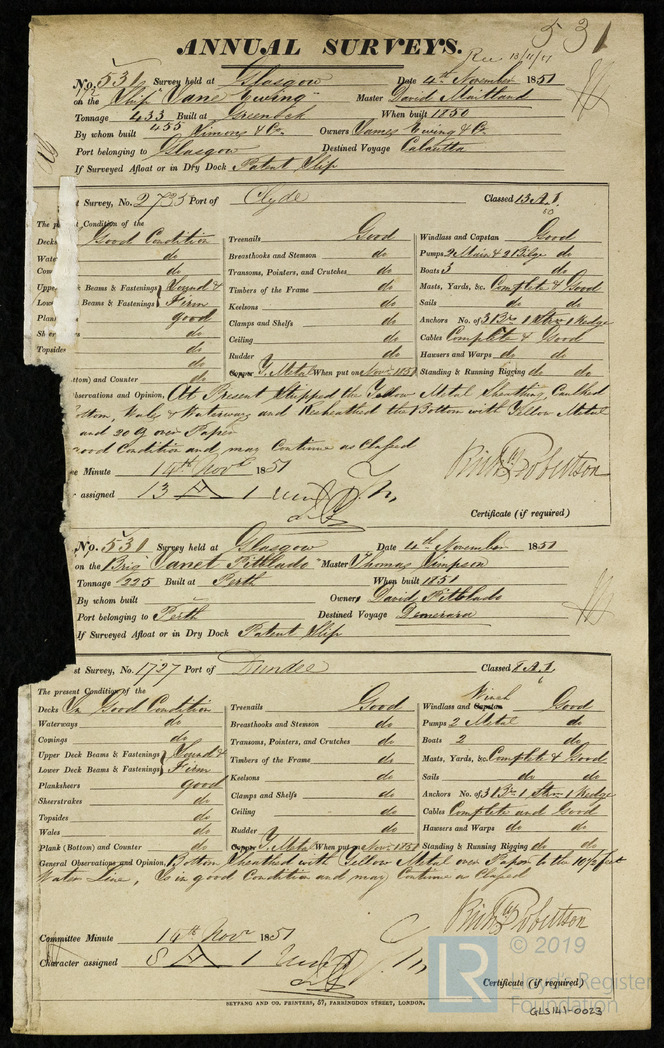 531
ANNUAL SURVEYS.
Rec 13/11/51
No. 531 Survey held at Glasgow Date 4th November 1851
on the Ship "Jane Ewing" Master David Maitland
Tonnage 433 Built at Greenock When built 1850
455
By whom built Simons & Co. Owners James Ewing & Co
Port belonging to Glasgow Destined Voyage Calcutta
If Surveyed Afloat or in Dry Dock Patent Slip
st Survey, No. 2735 Port of Clyde Classed 13 A.1.
50
The p Condition of the
Decks Good Condition Treenails Good Windlass and Capstan Good
Wate do Breasthooks and Stemson do Pumps 2 Main & 2 Bilge do
Com do Transoms, Pointers, and Crutches do Boats 3
Upper Deck Beams & Fastenings } Sound & Timbers of the Frame do Masts, Yards, &c. Complete & Good
Lower Beams & Fastenings } Firm Keelsons do Sails do do
Plank good Clamps and Shelfs do Anchors No. of 3 Br 1 Strm 1 Kedge
Sheer do Ceiling do Cables Complete & Good
Topsides do Rudder do Hawsers and Warps do do
do Copper Y. Metal When put on Nov. 1851 Standing & Running Rigging do do
ottom) and Counter do
bservations and Opinion, At Present Stripped the Yellow Metal Sheathing, Caulked
ottom, Wales & Waterways and Resheathed the Bottom with Yellow Metal
and 20 G over Paper
good Condition and may Continue as Classed
Richd Robertson
e Minute 14th Novr 1851
assigned 13 A 1
Certificate (if required)
No. 531 Survey held at Glasgow Date 4th November 1851
on the Brig "Janet Pitblado" Master Thomas Simpson
Tonnage 225 Built at Perth When built 1851
By whom built Owners David Pitblado
Port belonging to Perth Destined Voyage Demerara
If Surveyed Afloat or in Dry Dock Patent Slip
st Survey, No. 1727 Port of Dundee Classed 8 A.1.
The present Condition of the Winch
Decks In Good Condition Treenails Good Windlass and Capstan Good
Waterways do Breasthooks and Stemson do Pumps 2 Metal do
Comings do Transoms, Pointers, and Crutches do Boats 2 do
Upper Deck Beams & Fastenings } Sound & Timbers of the Frame do Masts, Yards, &c. Complete & Good
Lower Deck Beams & Fastenings } Firm Keelsons do Sails do do
Planksheers good Clamps and Shelfs do Anchors No. of 3 Br 1 Strm 1 Kedge
Sheerstrakes do Ceiling do Cables Complete and Good
Topsides do Rudder do Hawsers and Warps do do
Wales do Copper Y. Metal When put on Nov. 1851 Standing & Running Rigging do do
Plank (Bottom) and Counter do
General Observations and Opinion, Bottom Sheathed with Yellow Metal over Paper to the 10½ feet
Water Line, Is in good Condition and may Continue as Classed
Richd Robertson
Committee Minute 14th Novr 1851
Character assigned 8 A 1
Certificate (if required)
SEYFANG AND CO. PRINTERS, 57, FARRINGDON STREET, LONDON.
LR © 2019
Lloyd's Register
Foundation
GLS141-0023